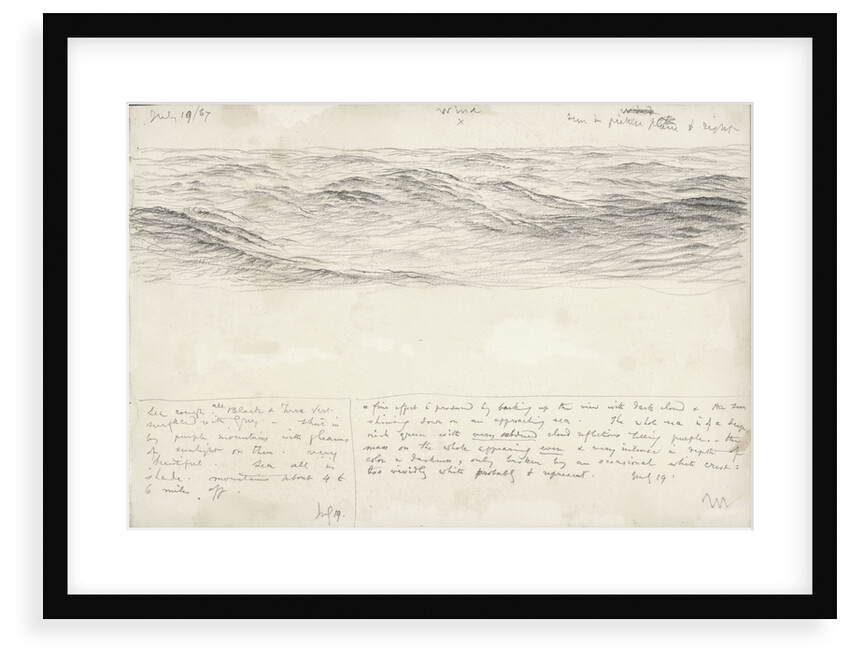 July 19/87
wind
x
wind
Sun in picture plane & right
Sea rough. all Black & Terre Vert
surfaced with Grey - shut in
by purple mountains with gleams
of sunlight on them. very
beautiful. Sea all in
shade. mountains about 4 to
6 miles off.
July 19.
a fine effect is produced by backing up the view with dark cloud & the sun
shining down on an approaching sea. The whole sea is of a deep
rich green with very subdued cloud reflections being purple. the
mass on the whole appearing even & very intense in depth of
color & darkness, only broken by an occasional white crest:
too vividly white probably to represent. July 19.